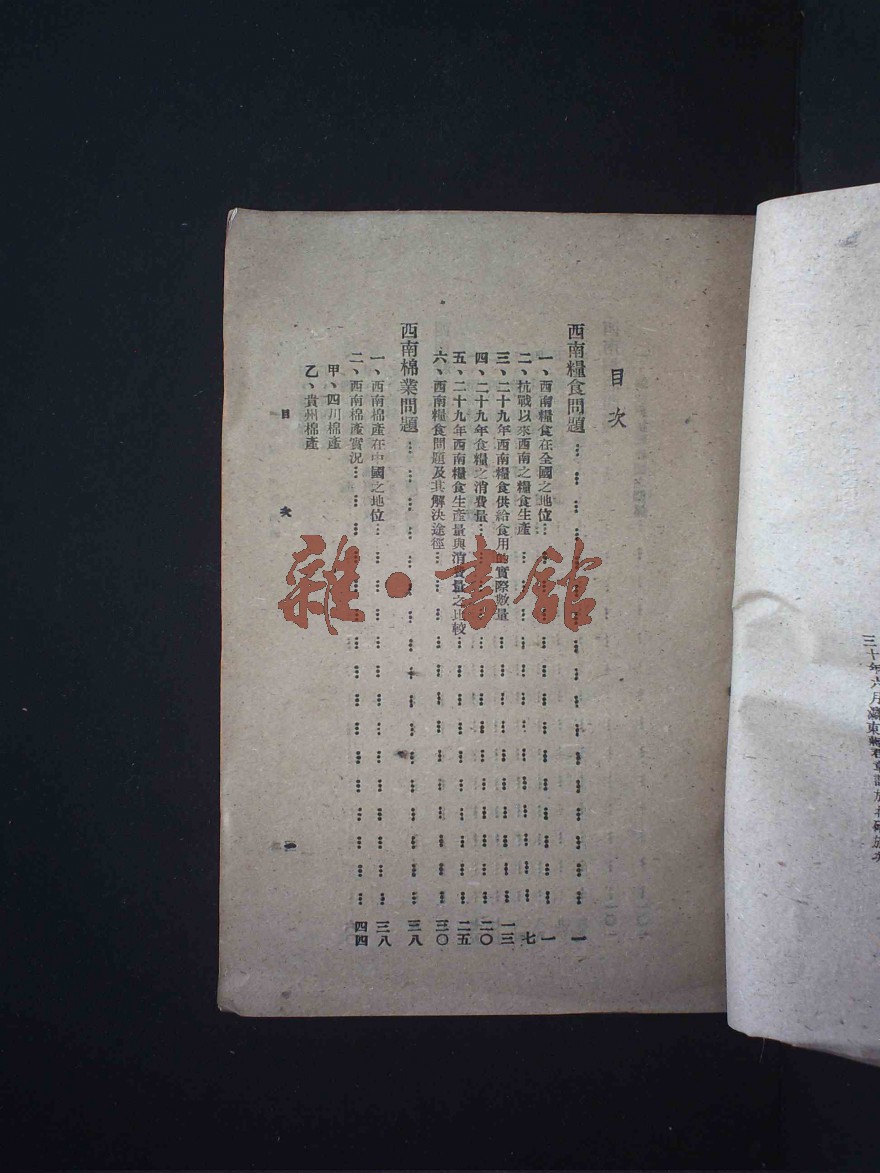 目次
西南糧食問題………一
一、西南糧食在全國之地位………一
二、抗戰以來西南之糧食生產………七
三、二十九年西南糧食供給食用的實際數量………一三
四、二十九年食糧之消費量………二〇
五、二十九年西南糧食生產量與消費量之比較………二五
六、西南糧食問題及其解決途徑………三〇
西南棉業問題………三八
一、西南棉產在中國之地位………三八
二、西南棉產實況………四四
甲、四川棉產
乙、貴州棉產
目 次 一
雜·書館
三十年六月